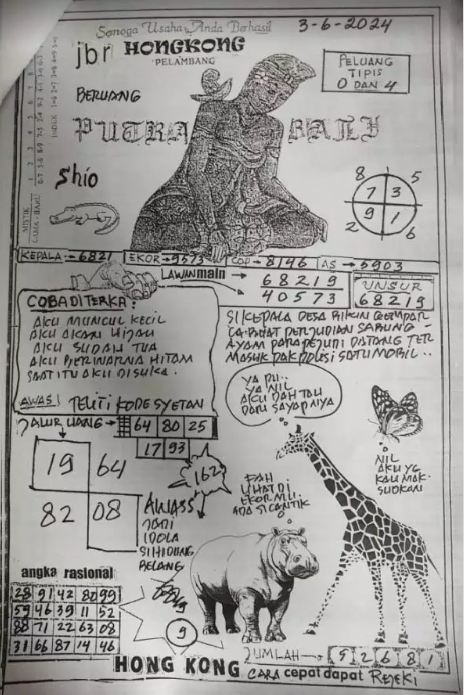 Semoga Usaha Anda Berhasil
3-6-2024
jbr HONGKONG
PELAMBANG
PELUANG
TIPIS
0 DAN 4
BERUANG
PUTRA BALI
Shio
8 5
7 3
9 1
2 6
MISTIK
LAMA BARU
INDEX
KEPALA = 6821 EKOR = 9573 COP = 8146 AS = 5903
LAWAN main
68219
40573
UNSUR
68219
COBA DITERKA:
AKU MUNCUL KECIL
AKU AKAN HIJAU
AKU SUDAH TUA
AKU BERWARNA HITAM
SAAT ITU AKU DISUKA.
SI KEPALA DESA BIKIN GEMPAR
PERJUDIAN SABUNG-
AYAM PARA PEJUDI DATANG TER
MASUK PAK POLISI SATU MOBIL..
AWAS! TELITI KODE SYETAN
JALUR UANG 64 80 25
17 93
19 64
82 08
162
YA PU..
YA NIL
AKU DAH TAU
DARI SAYAPNYA
NIL
AKU YG
KAU MAK-
SUDKAN
PAH
LIHAT DI
EKORMU..
ADA SI CANTIK
AWASS
JADI
IDOLA
SI HIDUNG
BELANG
angka rasional
28 91 42 80 99
59 46 39 11 52
88 71 22 63 08
31 66 87 14 46
9
JUMLAH 9 2 6 8 1
HONG KONG CARA cepat dapat REJEKI